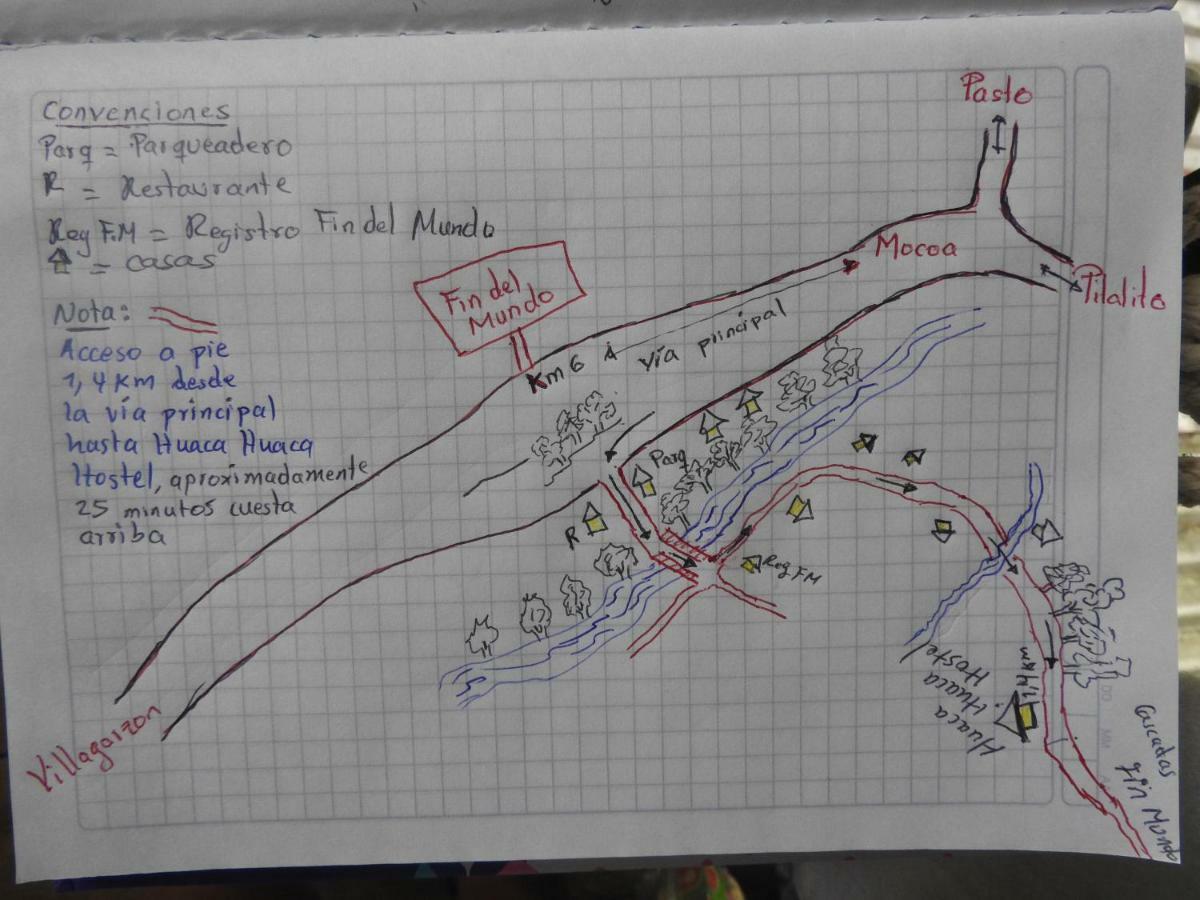 Convenciones
Parq = Parqueadero
R = Restaurante
Reg F.M = Registro Fin del Mundo
= casas
Nota:
Acceso a pie
1,4 Km desde
la vía principal
hasta Huaca Huaca
Hostel, aproximadamente
25 minutos cuesta
arriba
Pasto
Mocoa
Pitalito
Fin del
Mundo
Km 6 A
vía principal
Parq
R
Reg FM
Villagarzon
1,4 km
Huaca
Huaca
Hostel
Cascadas
Fin Mundo